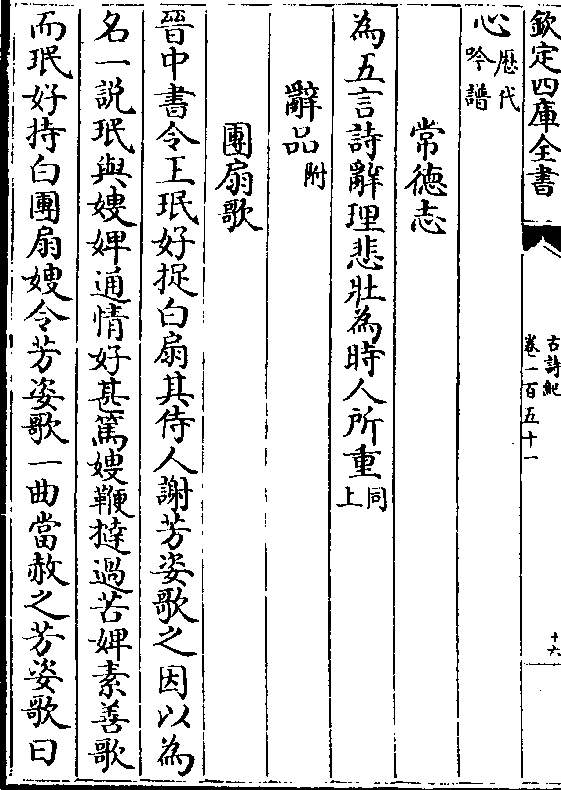 欽定四庫全書
古詩紀
卷一百五十一
十六
心歷代
吟譜
常德志
為五言詩辭理悲壯為時人所重同
上
辭品附
團扇歌
晉中書令王珉好捉白扇其侍人謝芳姿歌之因以為
名一説珉與嫂婢通情好甚篤嫂鞭撻過苦婢素善歌
而珉好持白團扇嫂令芳姿歌一曲當赦之芳姿歌曰